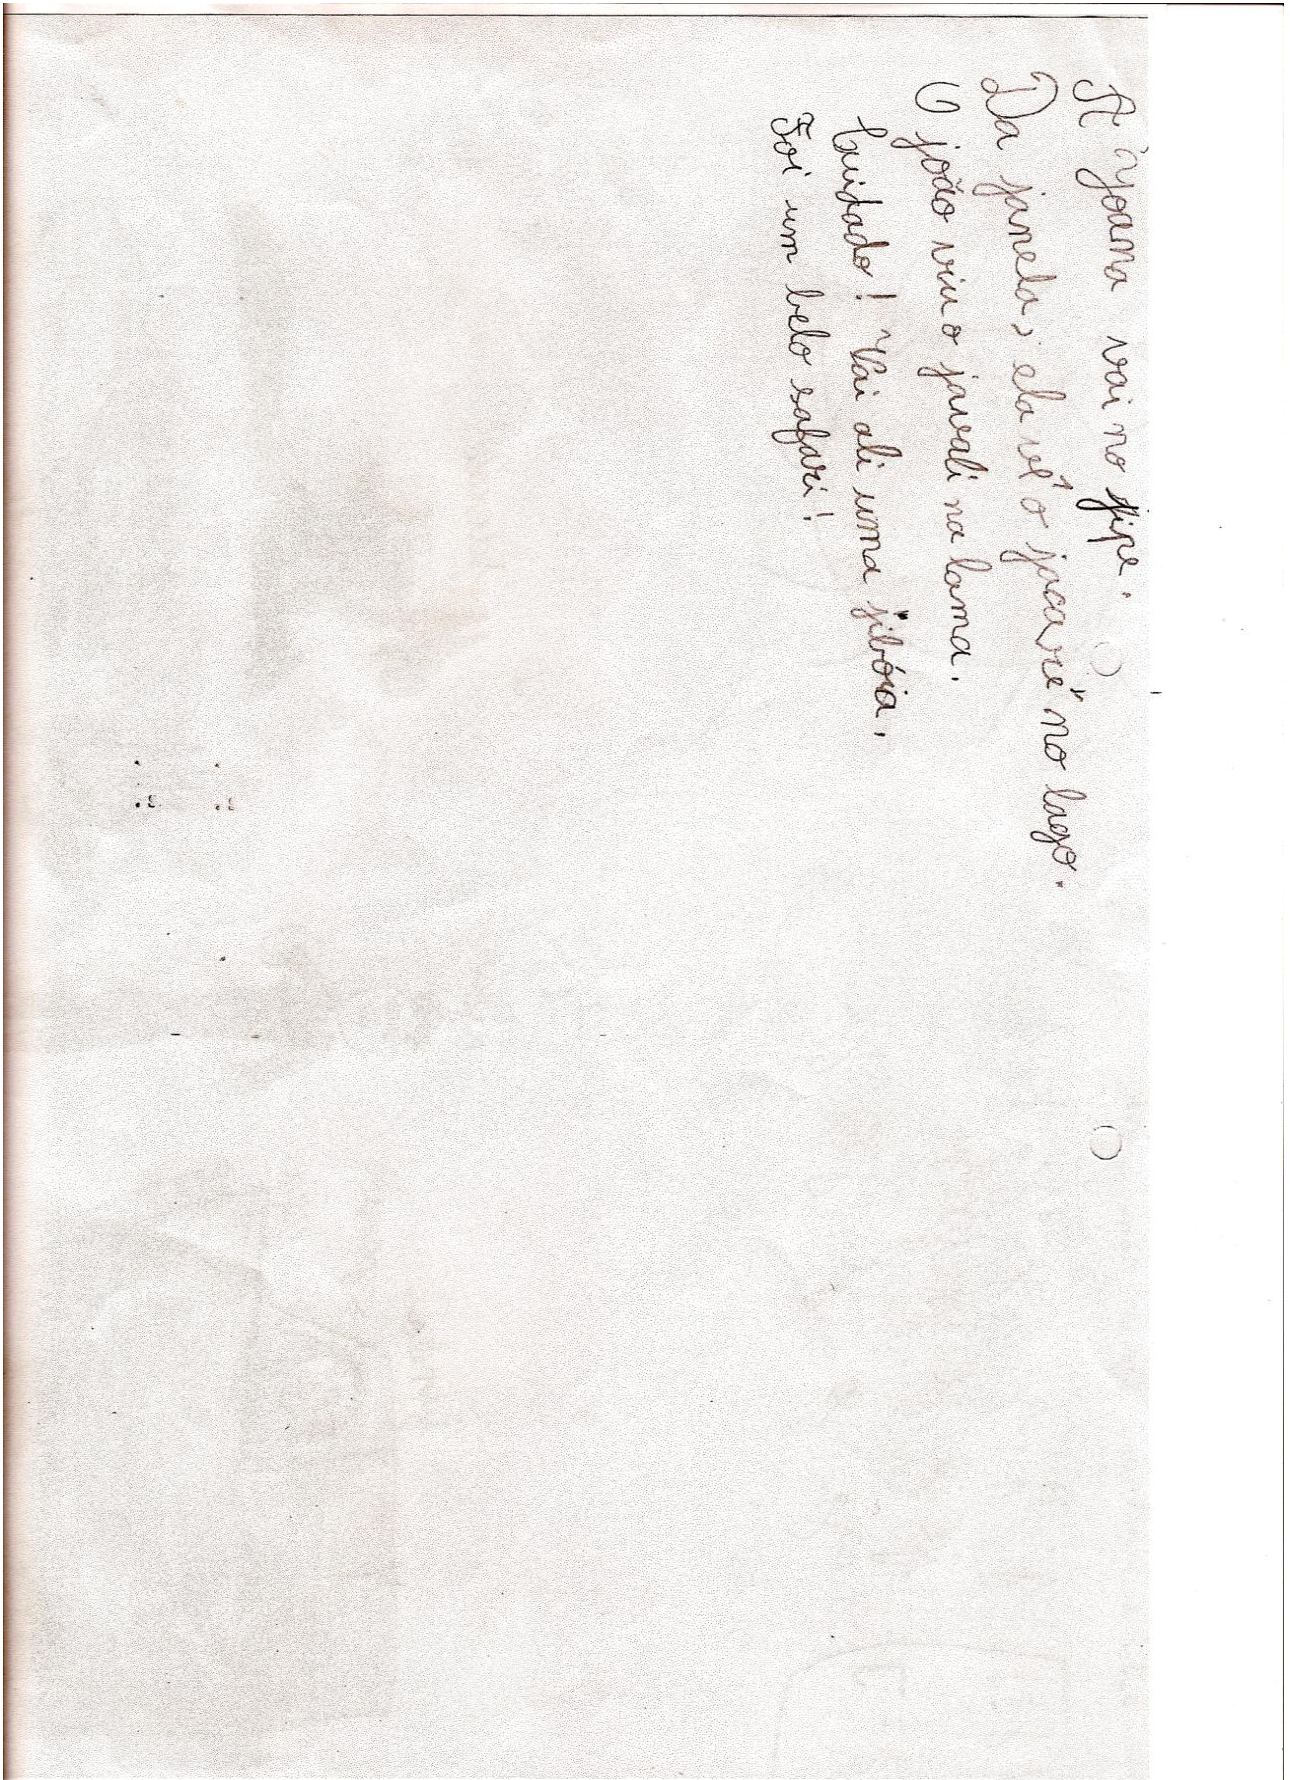 A Joana vai no jipe.
Da janela, ela vê o jacaré no lago.
O joão viu o javali na lama.
Cuidado! Vai ali uma jibóia.
Foi um belo safari!